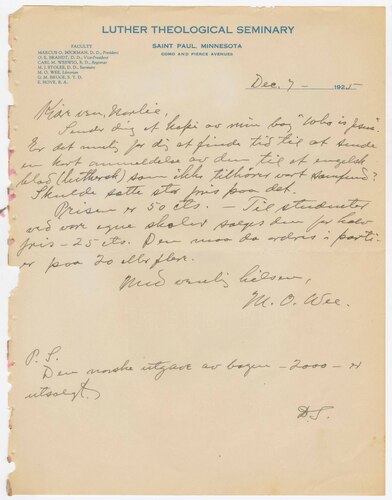 LUTHER THEOLOGICAL SEMINARY
SAINT PAUL, MINNESOTA
COMO AND PIERCE AVENUES
FACULTY
MARCUS O. BOCKMAN, D. D., President
O. E. BRANDT, D. D., Vice-President
CARL M. WESWIG, D. D., Registrar
M. J. STOLEE, D. D., Secretary
M. O. WEE, Librarian
G. M. BRUCE, S. T. D.
E. HOVE, B. A.
Dec. 7 - 1925
Kjære ven, Norlie.
Sender dig et kopi av min bog "Who is Jesus".
Er det mulig for dig at finde tid til at sende
en kort anmeldelse av den til et engelsk
blad (luthersk) som ikke tilhører vort samfund?
Skulde sætte stor pris paa det.
Prisen er 50 cts. - Til studenter
ved vore egne skoler sælges den for halv
pris - 25 cts. Den maa da ordres i parti-
er paa 20 eller flere.
Med venlig hilsen,
M. O. Wee.
P. S.
Den norske utgave av bogen - 2000 - er
utsolgt.
D. S.